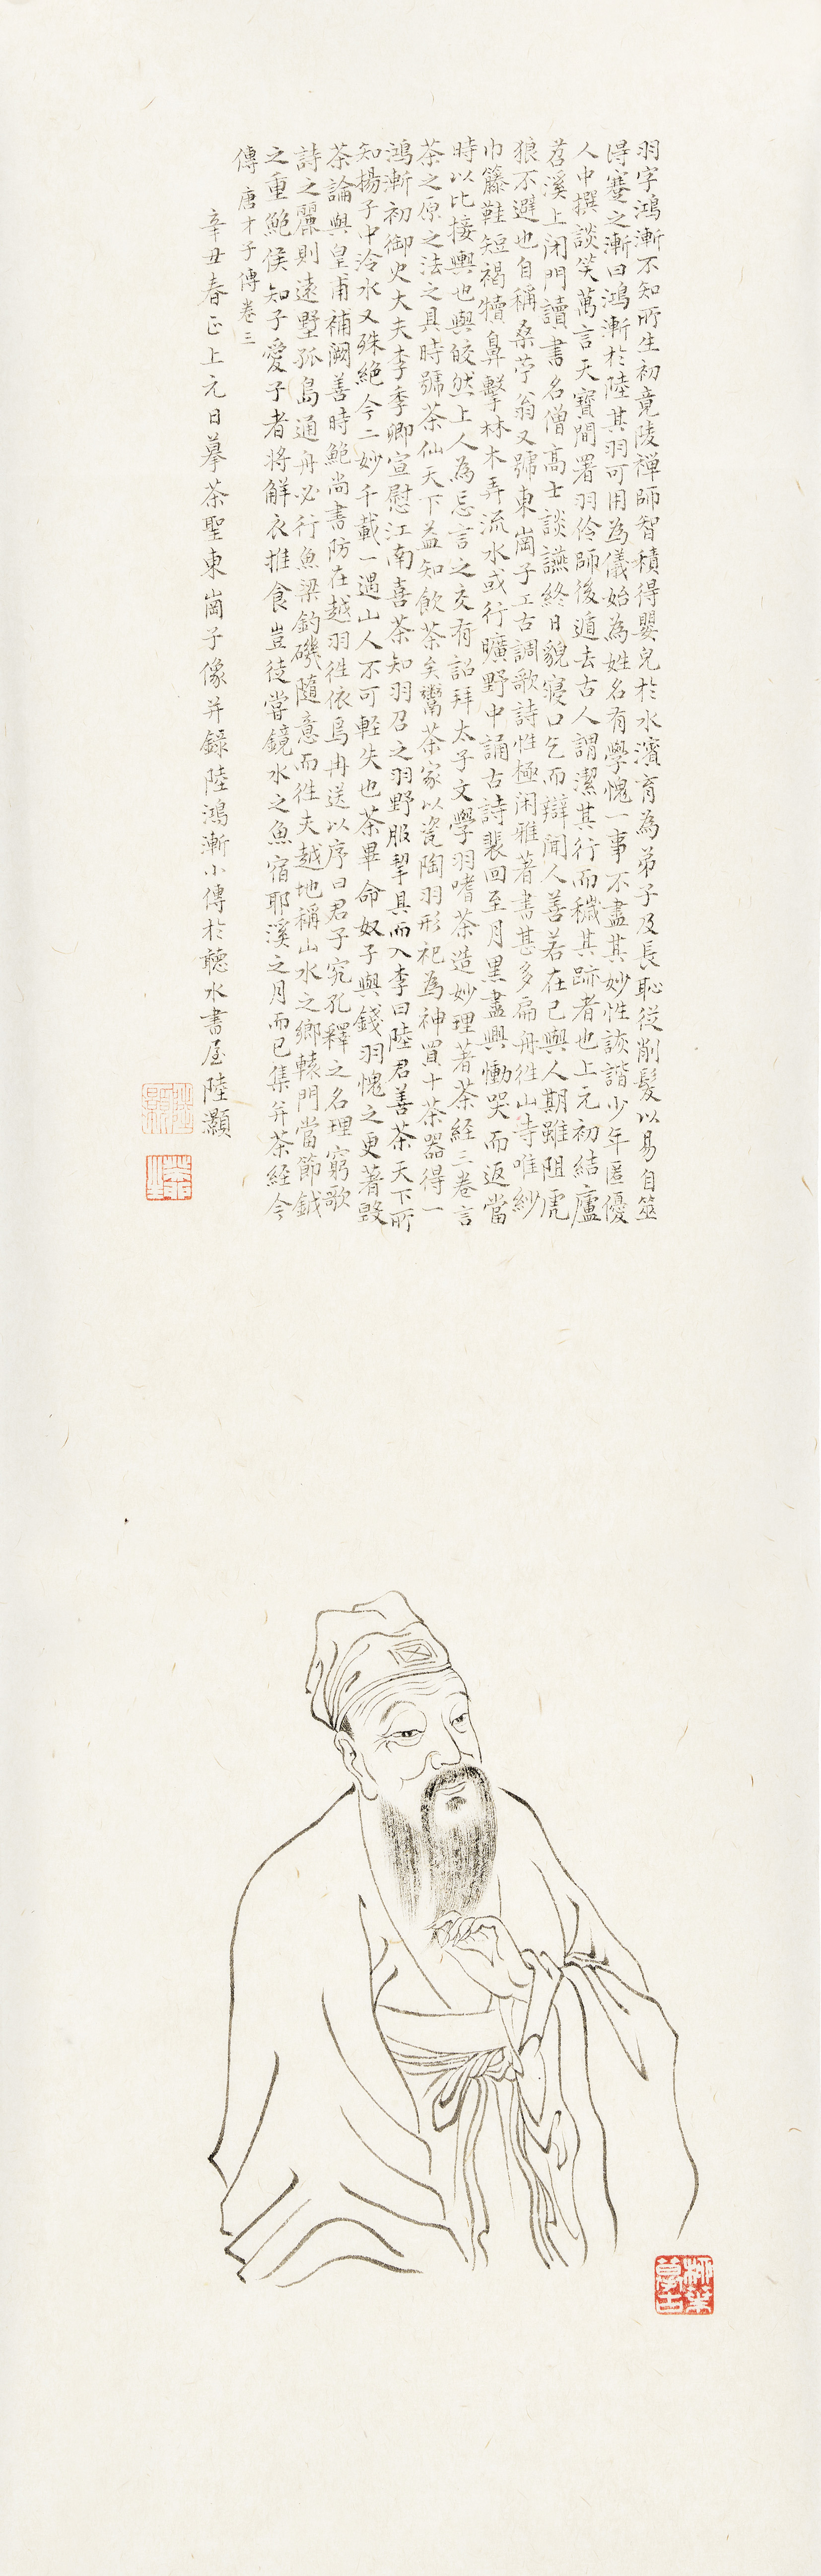 羽字鴻漸不知所生初竟陵禅師智積得嬰兒於水濱育為弟子及長恥從削髮以易自筮
得蹇之漸曰鴻漸於陸其羽可用為儀始為姓名有學愧一事不盡其妙性詼諧少年匿優
人中撰談笑萬言天寶間署羽伶師後遁去古人謂潔其行而穢其跡者也上元初結廬
苕溪上闭門讀書名僧高士談讌終日貌寢口乞而辯聞人善若在己與人期雖阻虎
狼不避也自稱桑苧翁又號東崗子工古調歌詩性極闲雅著書甚多扁舟徃山寺唯紗
巾籐鞋短褐犢鼻擊林木弄流水或行曠野中誦古詩裴回至月黑盡興慟哭而返當
時以比接輿也與皎然上人為忘言之交有詔拜太子文學羽嗜茶造妙理著茶経三卷言
茶之原之法之具時號茶仙天下益知飲茶矣鬻茶家以瓷陶羽形祀為神買十茶器得一
鴻漸初御史大夫李季卿宣慰江南喜茶知羽召之羽野服挈具而入李曰陸君善茶天下所
知揚子中泠水又殊絕今二妙千載一遇山人不可輕失也茶畢命奴子與錢羽愧之更著毀
茶論與皇甫補闕善時鮑尚書防在越羽徃依焉冉送以序曰君子究孔釋之名理窮歌
詩之麗則遠墅孤島通舟必行魚梁釣磯隨意而徃夫越地稱山水之鄉轅門當節鉞
之重鮑侯知子愛子者将解衣推食豈徒嘗鏡水之魚宿耶溪之月而已集并茶経今
傳 唐才子傳卷三
辛丑春正上元日摹茶聖東崗子像并錄陸鴻漸小傳於聽水書屋陸灝